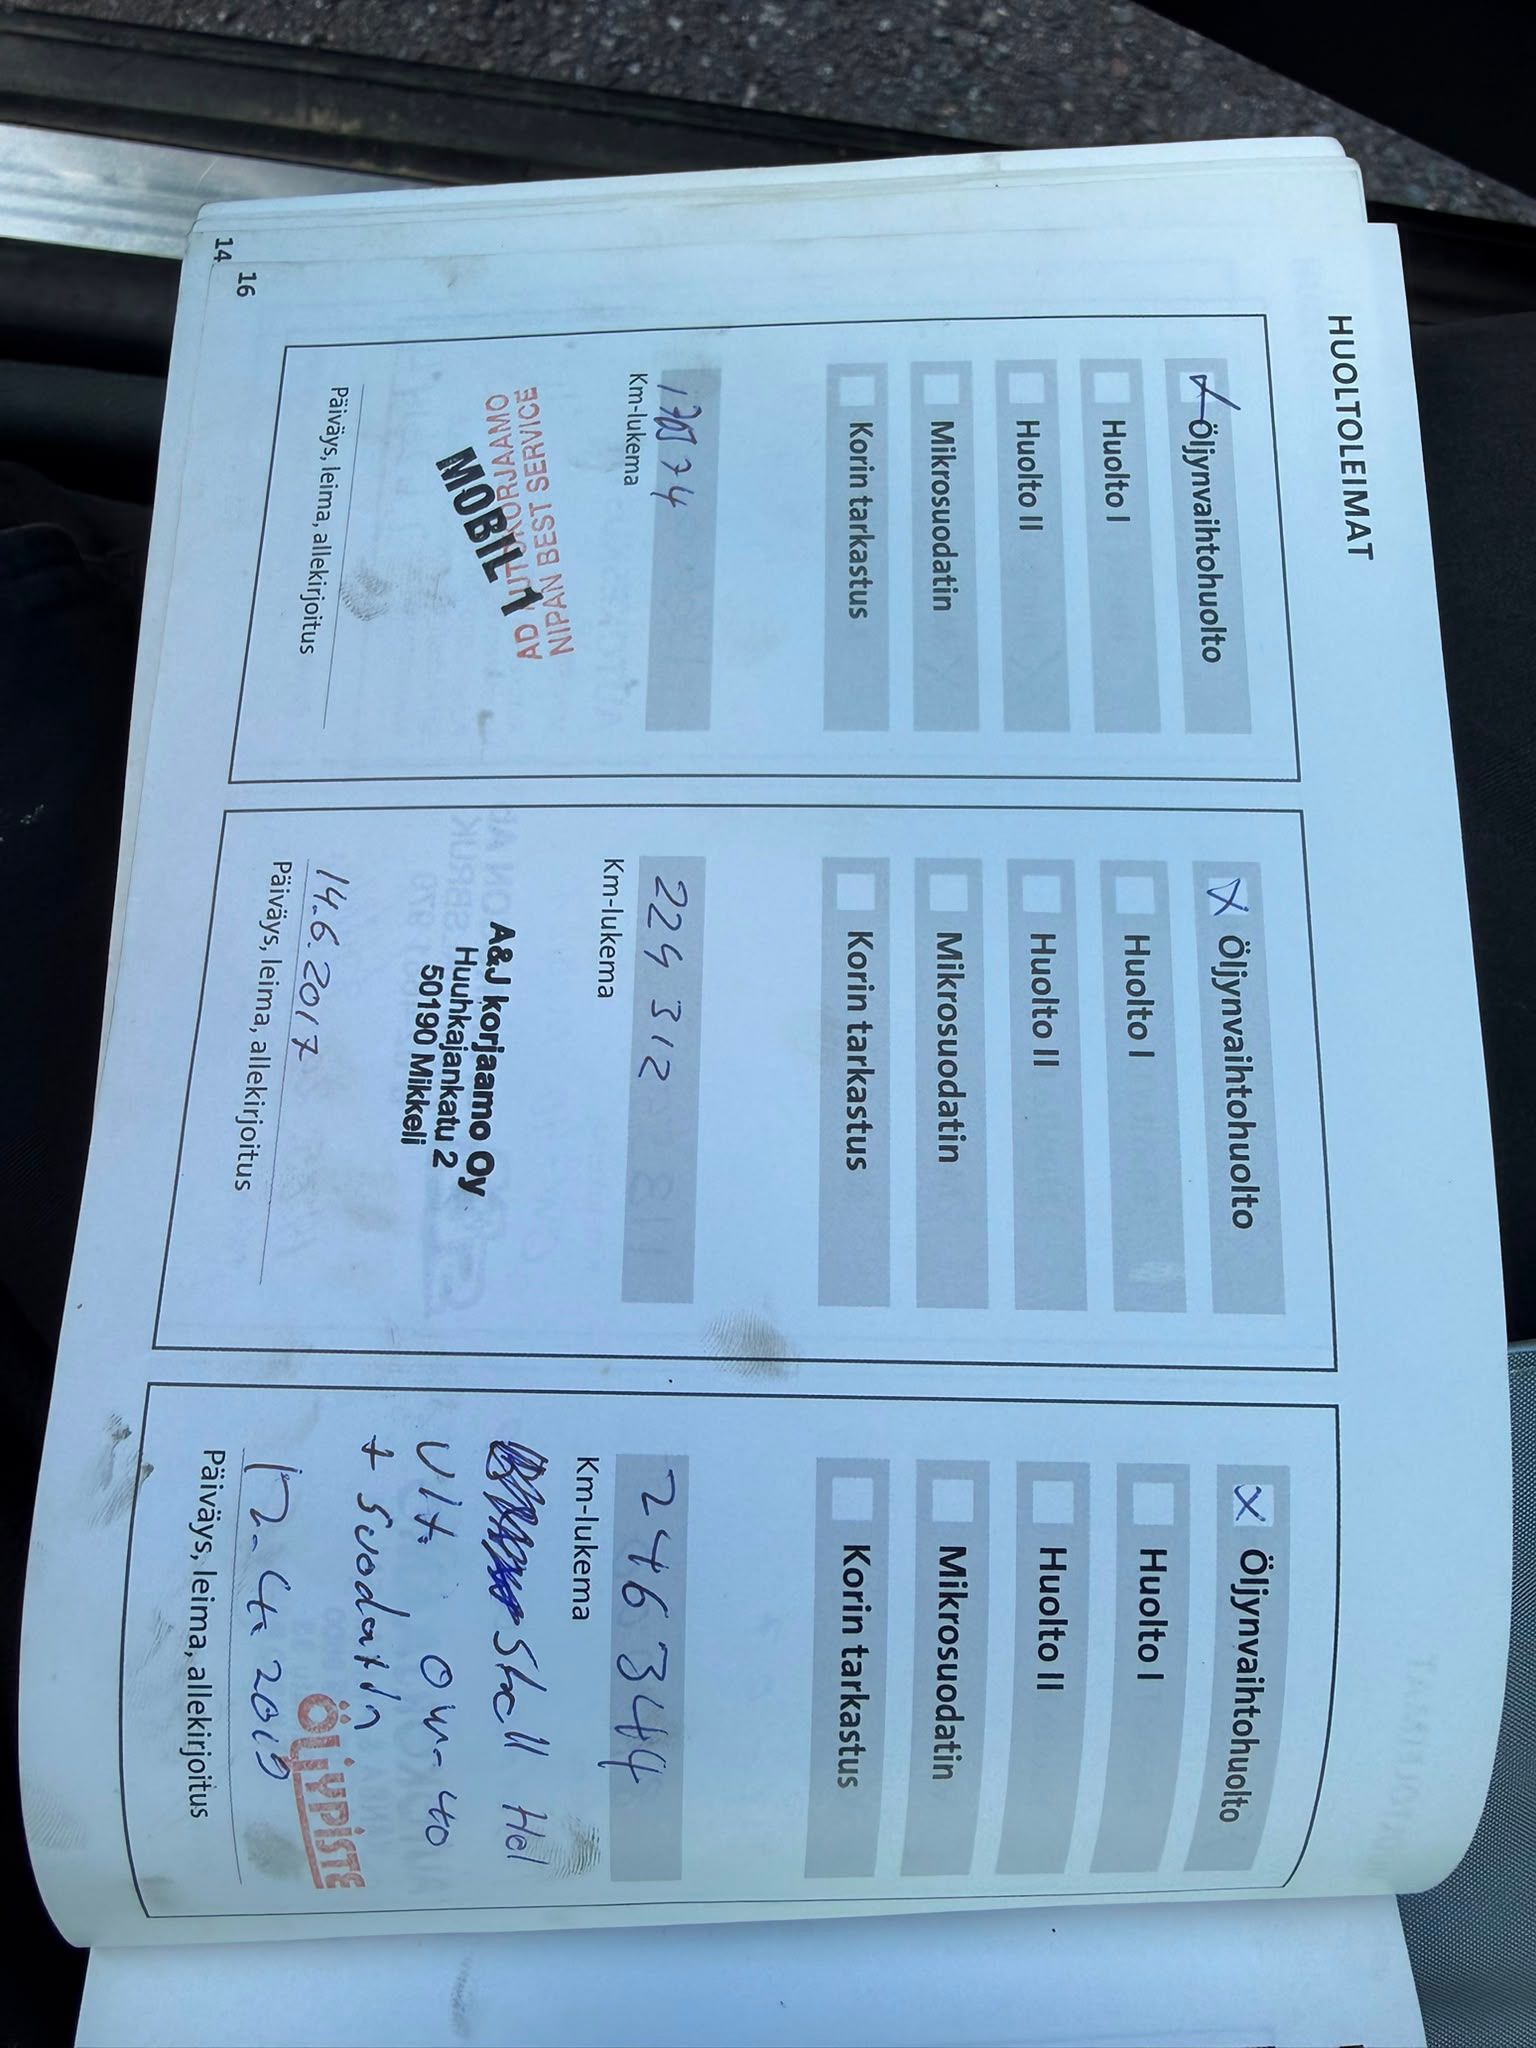 HUOLTOLEIMAT
Öljynvaihtohuolto
Huolto I
Huolto II
Mikrosuodatin
Korin tarkastus
Km-lukema
NIPAN BEST SERVICE
AD AUTOKORJAAMO
MOBIL 1
Päiväys, leima, allekirjoitus
Öljynvaihtohuolto
Huolto I
Huolto II
Mikrosuodatin
Korin tarkastus
224 312
Km-lukema
A&J korjaamo Oy
Huuhkajankatu 2
50190 Mikkeli
14.6.2017
Päiväys, leima, allekirjoitus
Öljynvaihtohuolto
Huolto I
Huolto II
Mikrosuodatin
Korin tarkastus
246344
Km-lukema
Shell Hel
Ult. 0w-40
+ suodatin
ÖLJYPISTE
12.4.2019
Päiväys, leima, allekirjoitus
16
14